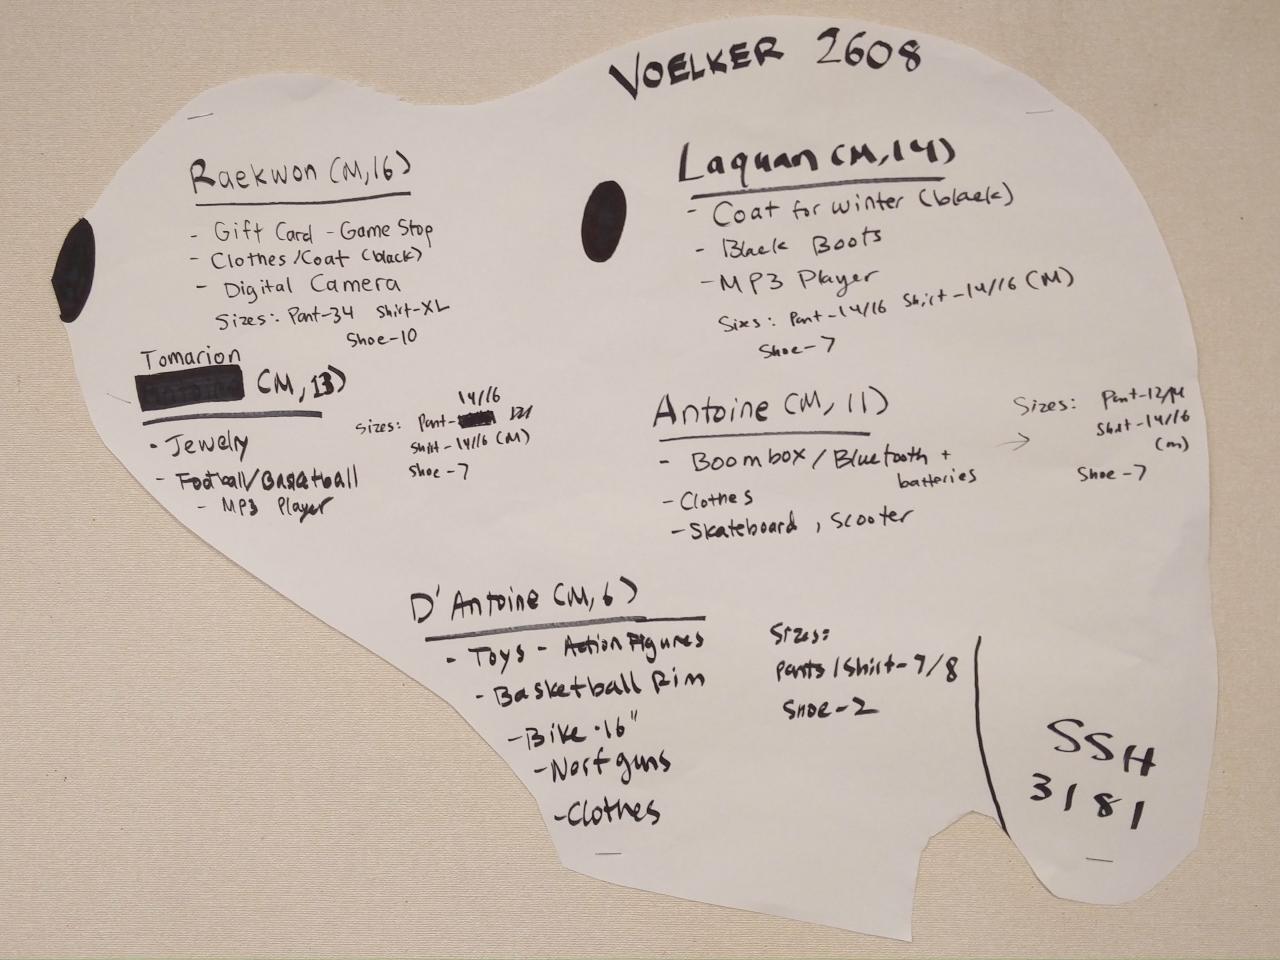 VOELKER 2608
Raekwon (M, 16)
- Gift Card - Game Stop
- Clothes/Coat (black)
- Digital Camera
Sizes: Pant-34 Shirt-XL
Shoe-10
Laquan (M, 14)
- Coat for winter (black)
- Black Boots
- MP3 Player
Sizes: Pant-14/16 Shirt-14/16 (M)
Shoe-7
Tomarion
(M, 13)
- Jewelry
- Football/Basketball
- MP3 Player
14/16
Sizes: Pant-
Shirt-14/16 (M)
Shoe-7
Antoine (M, 11)
- Boombox/Bluetooth +
batteries
- Clothes
- Skateboard, Scooter
Sizes: Pant-12/14
Shirt-14/16
(m)
Shoe-7
D'Antoine (M, 6)
- Toys - Action Figures
- Basketball Rim
- Bike - 16"
- Nerf guns
- Clothes
Sizes:
Pants/Shirt-7/8
Shoe-2
SSH
3181